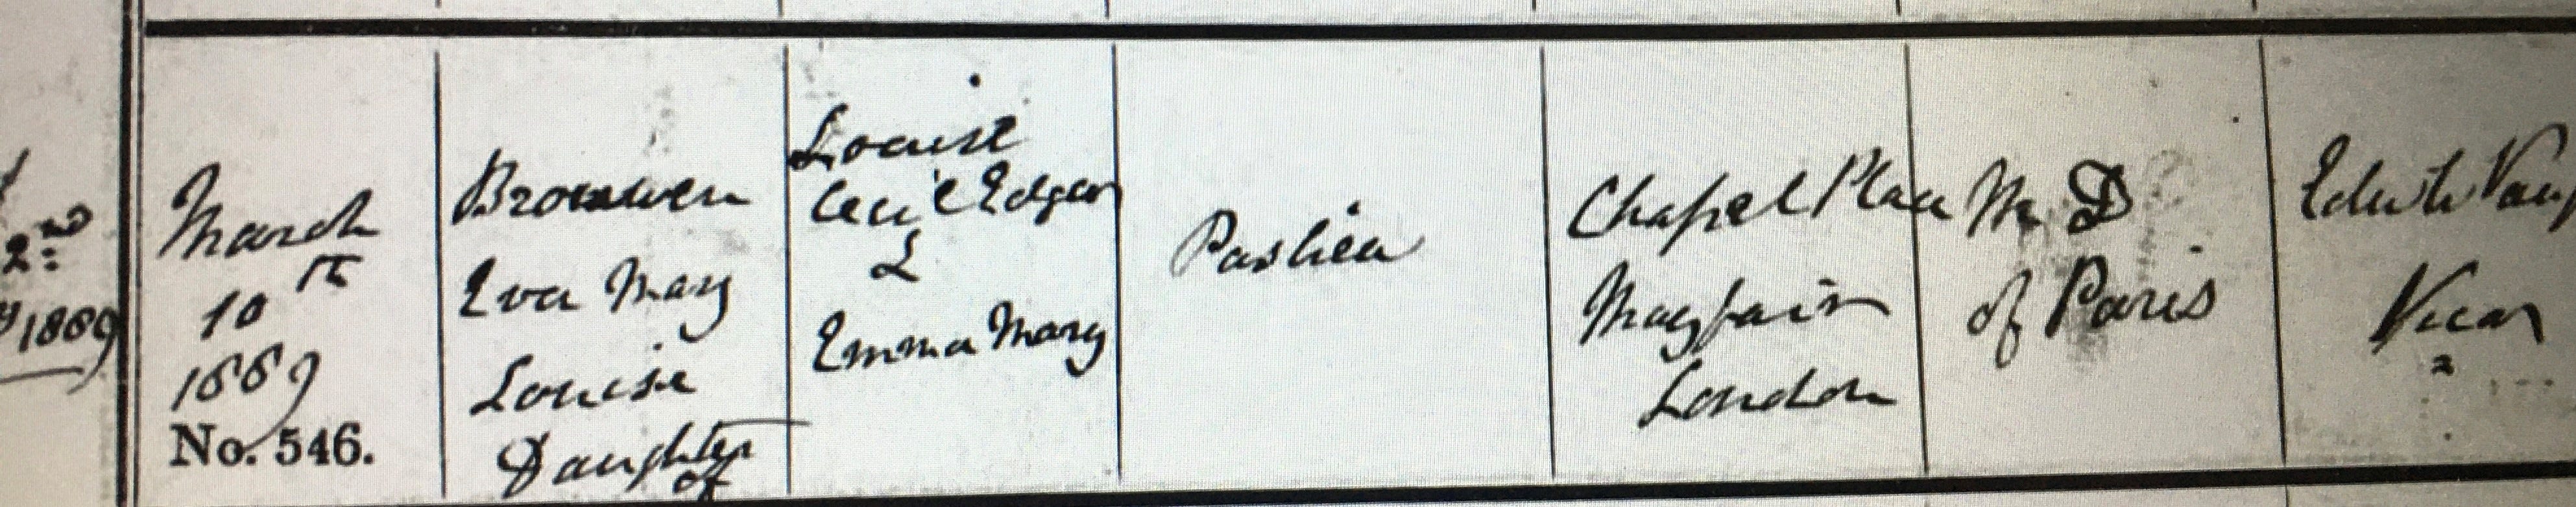 2nd
1869
March
10th
1869
No. 546.
Bronwen
Eva Mary
Louise
Daughter
of
Louise
Cecil Edgar
&
Emma Mary
Chapel Place
Mayfair
London
M. D
of Paris
Vicar